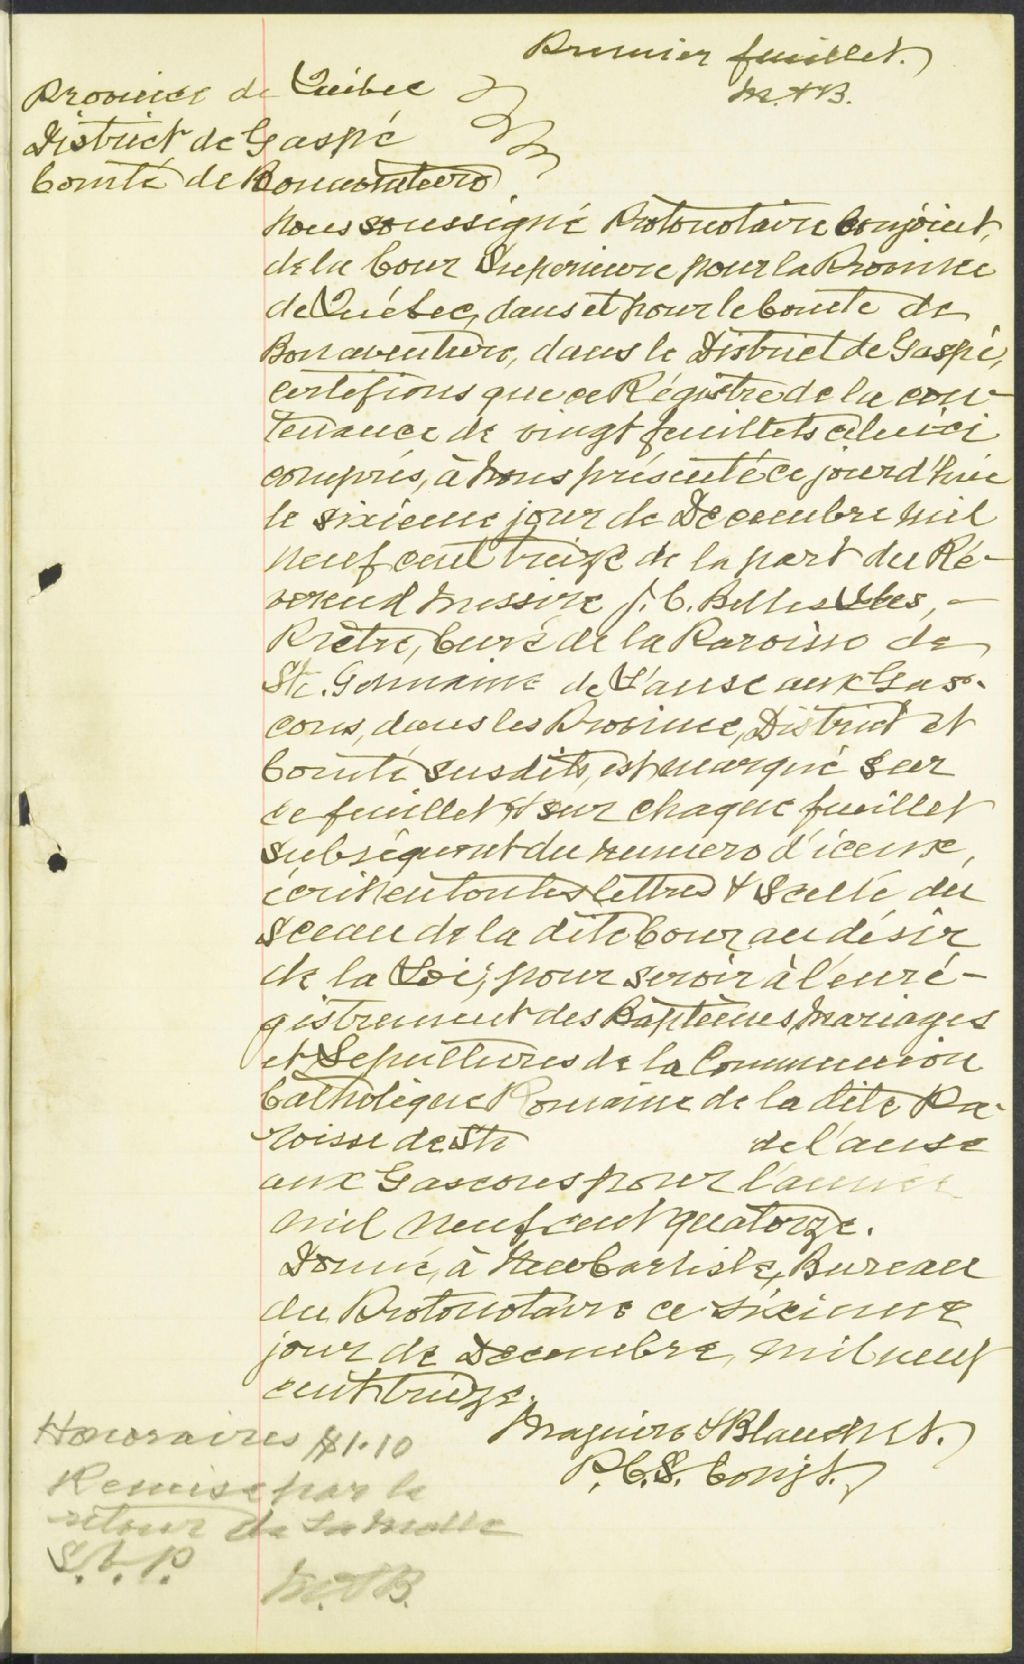 Premier feuillet.
M. & B.
Province de Québec
District de Gaspé
Comté de Bonaventure
Nous soussigné Protonotaire Conjoint,
de la Cour Superieure pour la Province
de Québec, dans et pour le Comte de
Bonaventure, dans le District de Gaspé,
certifions que ce Régistre de la con-
tenance de vingt feuillets celui ici
compris, à nous présenté ce jourd'hui
le sixieme jour de Decembre mil
neuf cent treize de la part du Ré-
verend Messire J. C. Belles Isles, -
Prêtre, Curé de la Paroisse de
Ste. Germaine de L'anse aux Gas-
cons, dans les Province, District et
Comté susdits, est marqué sur
ce feuillet & sur chaque feuillet
subséquent du numero d'iceux,
écrit en toutes lettres & scellé du
Sceau de la dite Cour au désir
de la Loi; pour servir à l'enré-
gistrement des Baptèmes, Mariages
et Sepultures de la Communion
Catholique Romaine de la dite Pa-
roisse de Ste de l'anse
aux Gascons pour l'année
mil neuf cent quatorze.
Donné, à New Carlisle, Bureau
du Protonotaire ce sixieme
jour de Decembre, mil neuf
cent treize.
Maguire & Blanchet.
P. C. S. Conjt.
Honoraires $1.10
Remise par le
retour de la Malle
S. V. P.
M. & B.